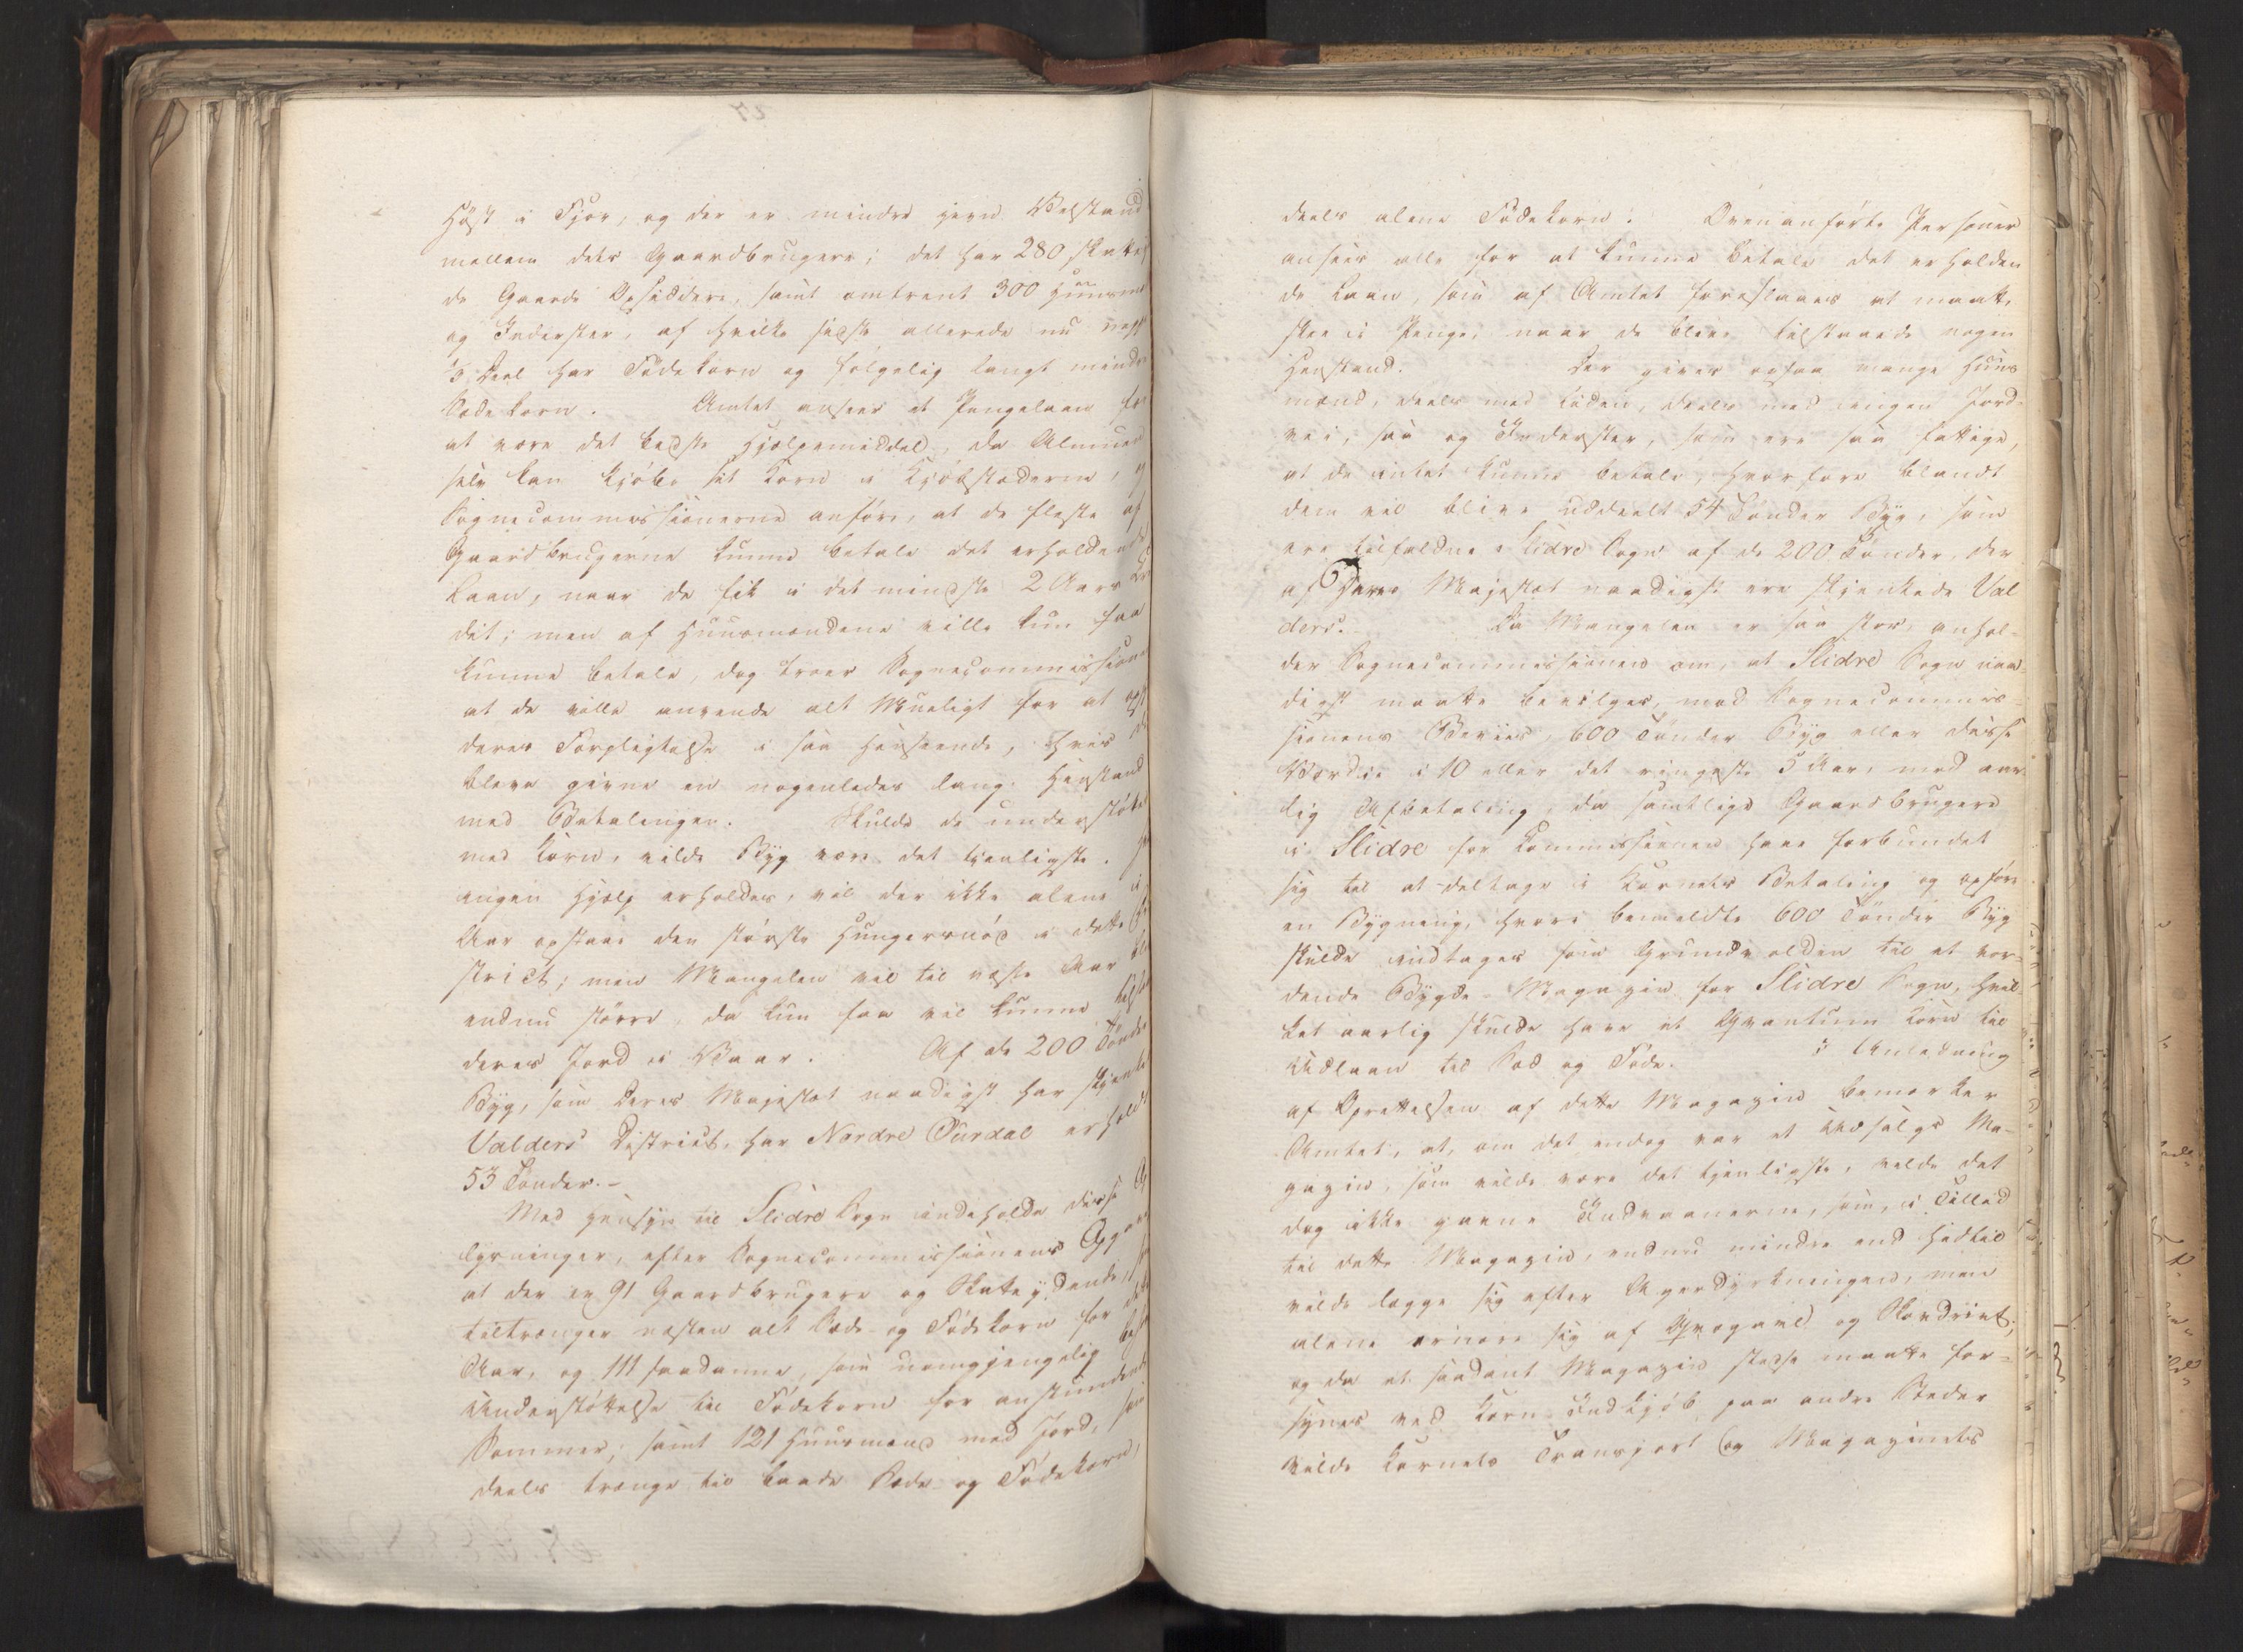 Høst i Fjor, og der er mindre jevn Velstand
mellem dets Gaardbrugere; det har 280 skatte
de Gaards Opsiddere, samt omtrent 300 Huusmæ
og Inderster, af hvilke sidste allerede nu neppe
⅓ Deel har Fødekorn og følgelig langt mindre
Sædekorn. Amtet anseer et Pengelaan for
at være det bedste Hjælpemiddel, da Almuen
selv kan kjøbe sit Korn i Kjøbstæderne, og
Sognecommissionerne anføre, at de fleste af
Gaardbrugerne kunne betale det erholdende
Laan, naar de fik i det mindste 2 Aars Cre
dit; men af Huusmændene ville kun faa
kunne betale, dog troer Sognecommissione
at de ville anvende alt Mueligt for at opf
deres Forpligtelse i saa Henseende, hvis de
bleve givne en nogenledes lang Henstand
med Betalingen. Skulde de understøttes
med Korn, vilde Byg være det tjenligste.
ingen Hjælp erholdes, vil der ikke alene i
Aar opstaae den største Hungersnød i dette Di
strict; men Mangelen vil til næste Aar bli
endnu større, da kun faa vil kunne tilsaae
deres Jord i Vaar. Af de 200 Tønder
Byg, som Deres Majestæt naadigst har skjenket
Valders District, har Nordre Ourdal erholdt
53 Tønder. –
Med Hensyn til Slidre Sogn indeholde disse O
lysninger, efter Sognecommissionens Opgave
at der er 91 Gaardbrugere og Skatteydende,
tiltrænger næsten alt Sæde- og Fødekorn for dette
Aar, og 111 saadanne, som uomgjængelig beh
Understøttelse til Fødekorn for anstundende
Sommer; samt 121 Huusmænd med Jord, som
deels trænge til baade Sæde- og Fødekorn,
deels alene Fødekorn. Ovenanførte Personer
ansees alle for at kunne betale det erholden
de Laan, som af Amtet foreslaaes at maatte
skee i Penge, naar de blive tilstaaede nogen
Henstand. Der gives ogsaa mange Huus
mænd, deels med liden, deels med ingen Jord-
vei, saa og Inderster, som ere saa fattige,
at de intet kunne betale, hvorfore blandt
dem vil blive uddeelt 54 Tønder Byg, som
ere tilfaldne Slidre Sogn af de 200 Tønder, der
af Deres Majestæt naadigst ere skjenkede Val
ders. Da Mangelen er saa stor, anhol-
der Sognecommissionen om, at Slidre Sogn naa-
digst maatte bevilges, mod Sognecommis-
sionens Beviis, 600 Tønder Byg eller disses
Værdie i 10 eller det ringeste 5 Aar, med aar
lig Afbetaling, da samtlige Gaardbrugere
i Slidre for Commissionen have forbundet
sig til at deltage i Kornets Betaling og opføre
en Bygning, hvori bemeldte 600 Tønder Byg
skulde indtages som Grundvolden til et vor-
dende Bygde-Magazin for Slidre Sogn, hvil-
ket aarlig skulde have et Qvantum Korn til
Udlaan til Sæd og Føde. I Anledning
af Oprettelsen af dette Magazin bemærker
Amtet, at, om det endog var et Udsalgs Ma-
gazin, som vilde være det tjenligste, vilde det
dog ikke gavne Indvaanerne, som, i Tillid
til dette Magazin, endnu mindre end hidtil
vilde lægge sig efter Agerdyrkningen, men
alene ernære sig af Qvægavl og Skovdrivt;
og da et saadant Magazin stedse maatte for-
synes ved Korn Indkjøb paa andre Steder
vilde Kornets Transport og Magazinets